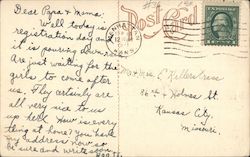 Dear Papa & Mama.
Well today is
registration day and
it is pouring down.
Are just waiting for the
girls to come after
us. They certainly are
all very nice to us
up here. How is every
thing at home? you have
my address now so
be sure and write soon.
Post Card
Mr & Mrs C. Kellerstrass
86th & Holmes St.
Kansas City,
Missouri.